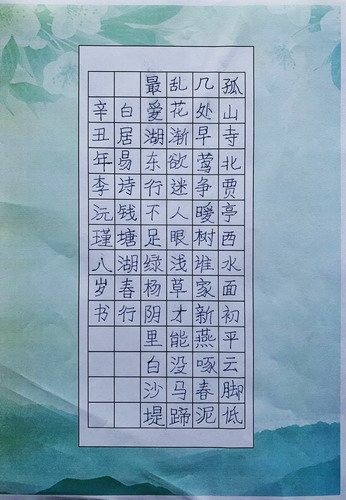 孤山寺北贾亭西水面初平云脚低
几处早莺争暖树谁家新燕啄春泥
乱花渐欲迷人眼浅草才能没马蹄
最爱湖东行不足绿杨阴里白沙堤
白居易诗钱塘湖春行
辛丑年李沅瑾八岁书